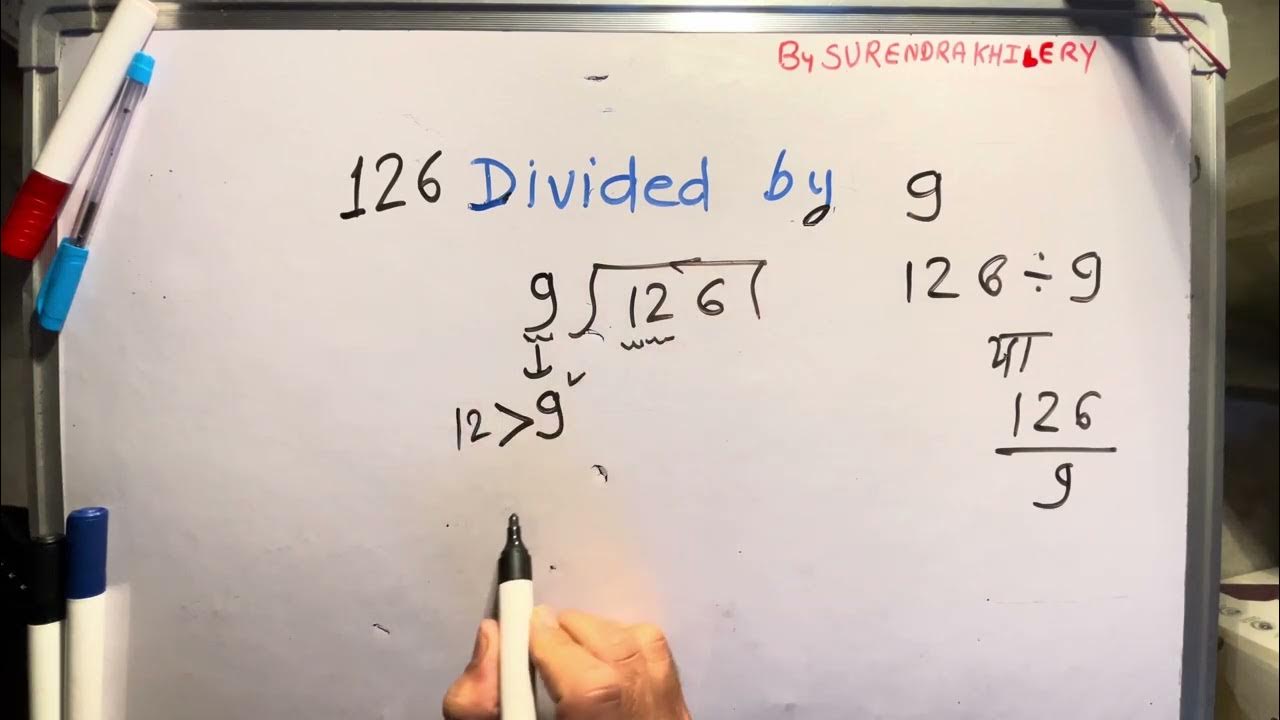 By SURENDRA KHILERY
126 Divided by 9
9 126
126 ÷ 9
या
126
9
12 > 9